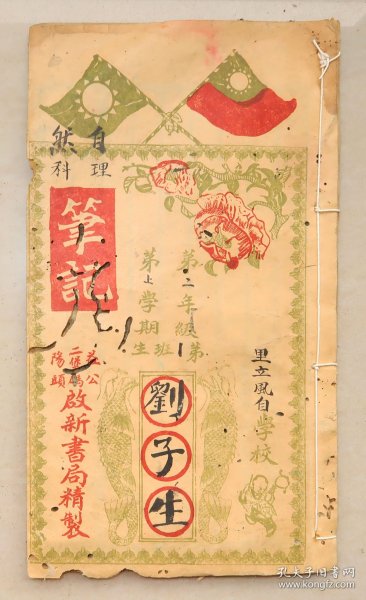 自然
理科
筆記
第二年級第
第上學期 班生
里立鳳自學校
劉子生
公
二馬
陽頭
啟新書局精製
孔夫子旧书网